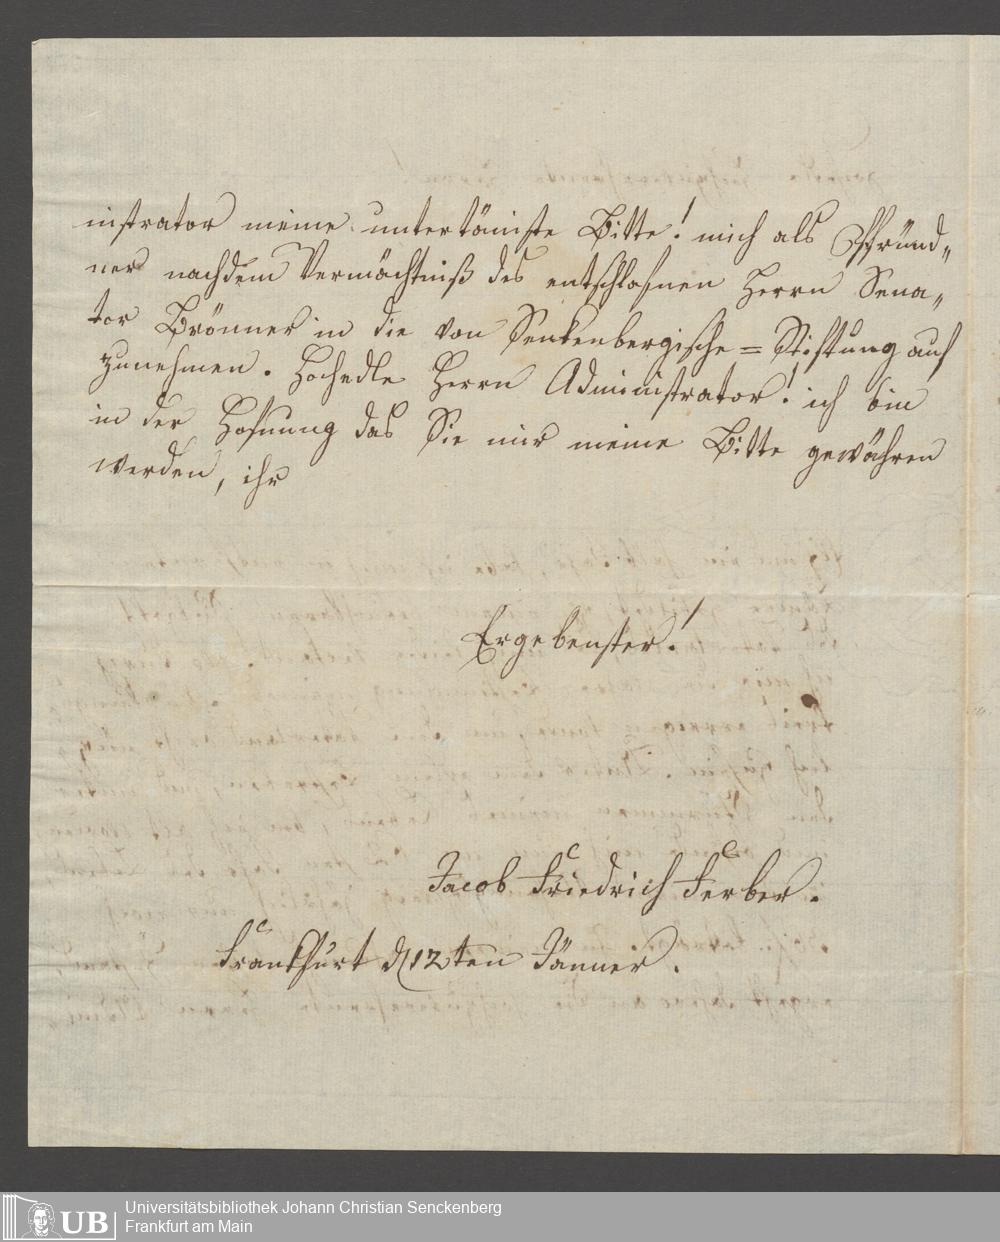 nistrator meine untertänigste Bitte! mich als Pfründ„
ner nachdem Vermächtniß des entschlafnen Herrn Sena„
tor Brönner in die von Senkenbergische = Stiftung auf
zunehmen. Hochedle Herrn Administrator! ich bin
in der Hofnung das Sie mir meine Bitte gewähren
werden, ihr
Ergebenster!
Jacob Friedrich Ferber.
Frankfurt d 12ten Jänner.
UB
Universitätsbibliothek Johann Christian Senckenberg
Frankfurt am Main